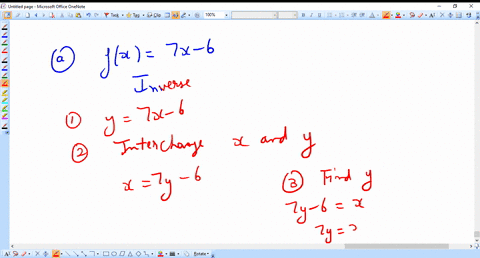 Untitled page - Microsoft Office OneNote
100%
ⓐ f(x) = 7x-6
Inverse
① y = 7x-6
② Interchange x and y
x = 7y-6
③ Find y
7y-6 = x
7y =
Rotate